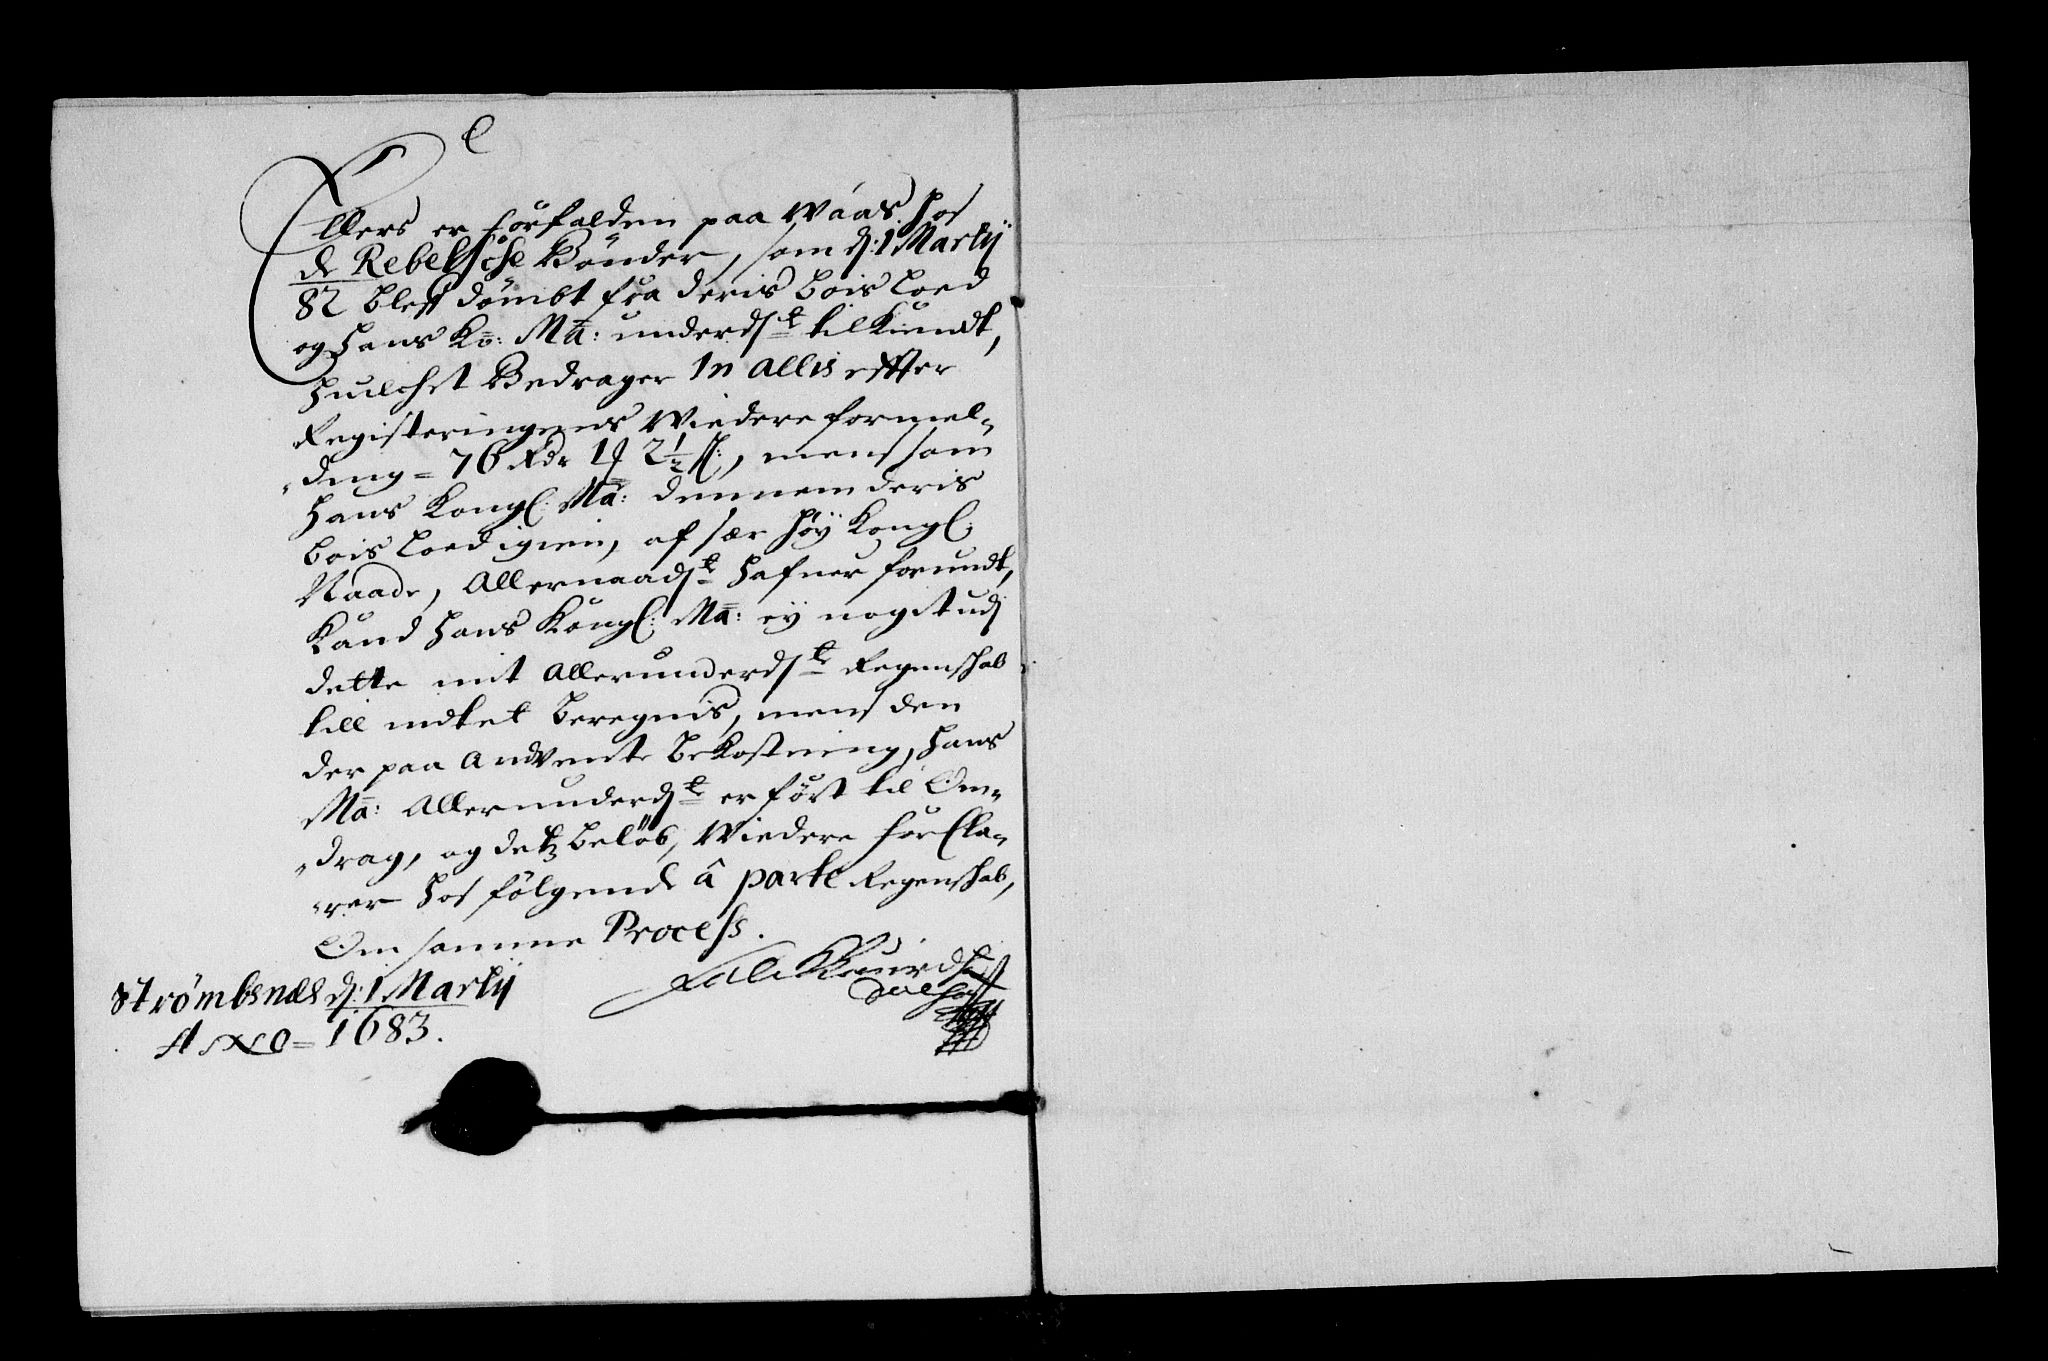 Ellers er forfalden paa Waas hos
de Rebelsche Bönder, som d: 1 Martij
82 bleff dömbt fra deris boisloed
og Hans Ko: Ma: underdste tilkiendt,
huilchet Bedrager In allis effter
Registeringens Widere formel„
„ding = 76 Rdr 1 2½ ß:, mens som
Hans Kongl: Ma: dennem deris
boisloed igien, af sær höy Kongl:
Naade, Allernaadste hafuer forundt,
Kand Hans Kongl: Ma: ey noget udj
dette mit allerunderdste Regenschab
till indtet beregnis, mens den
der paa anvente bekostning, Hans
Ma: Allerunderdste er fört til Om„
„drag, og detz belöb, Widere forCla„
„rer hos fölgende â parte Regenschab,
Om samme Process.
Strömbsnæs d: 1 Martij
Anno = 1683.